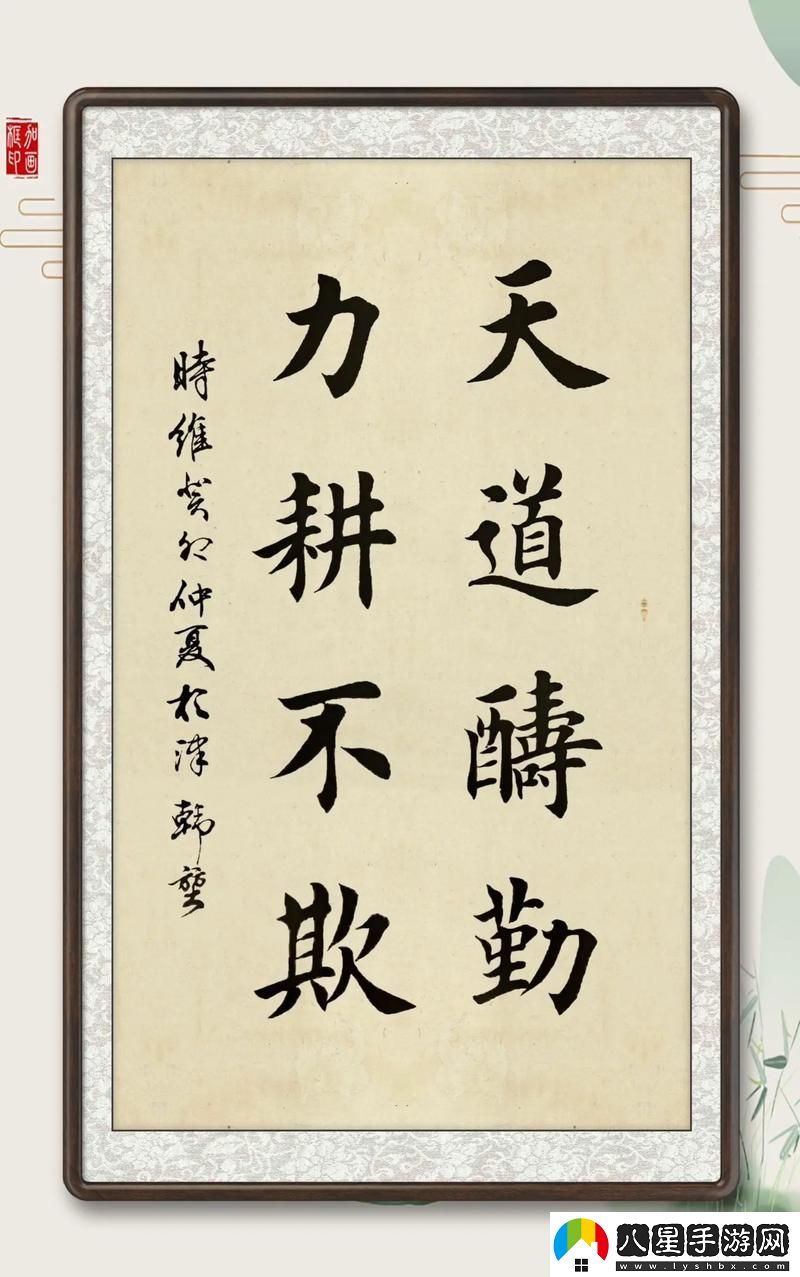 天道醻勤
力耕不欺
時維癸卯仲夏於津 韩
加画框印
八星手游网
www.lyshbx.com